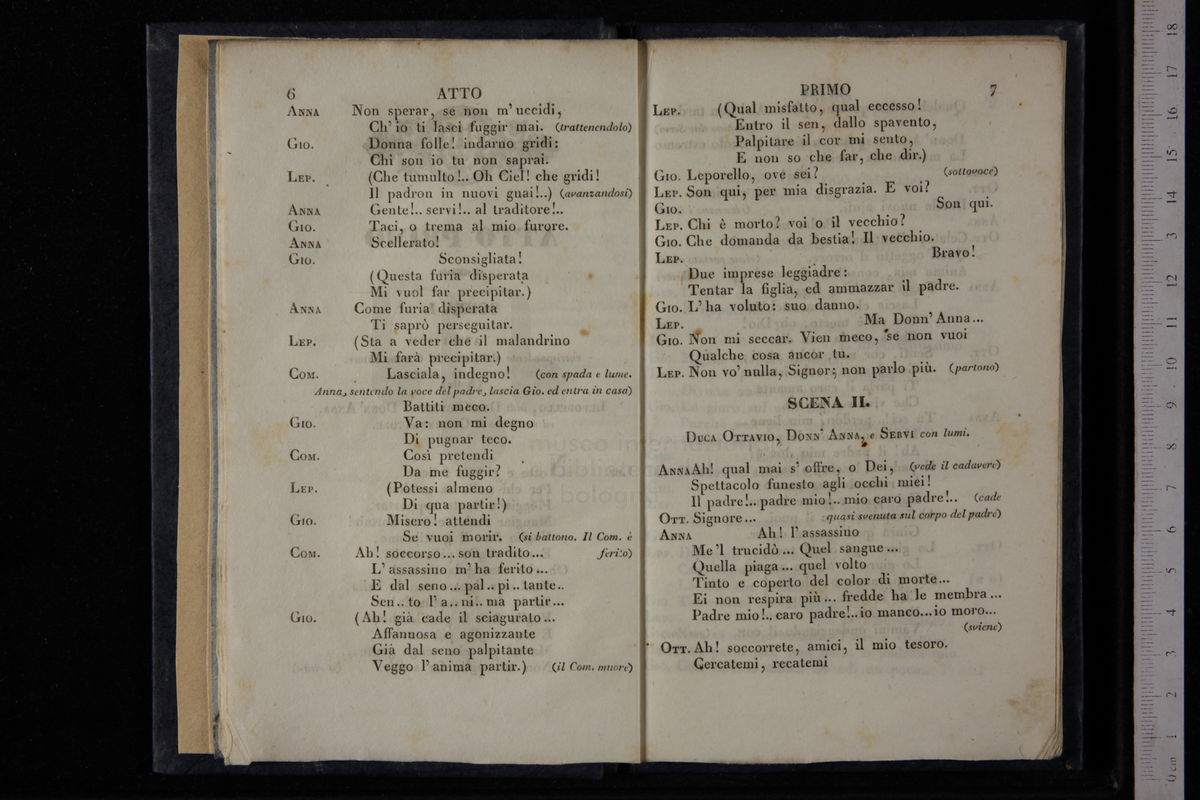 6 ATTO
ANNA Non sperar, se non m'uccidi,
Ch'io ti lasci fuggir mai. (trattenendolo)
GIO. Donna folle! indarno gridi:
Chi son io tu non saprai.
LEP. (Che tumulto!.. Oh Ciel! che gridi!
Il padron in nuovi guai!..) (avanzandosi)
ANNA Gente!.. servi!.. al traditore!..
GIO. Taci, o trema al mio furore.
ANNA Scellerato!
GIO. Sconsigliata!
(Questa furia disperata
Mi vuol far precipitar.)
ANNA Come furia disperata
Ti saprò perseguitar.
LEP. (Sta a veder che il malandrino
Mi farà precipitar.)
COM. Lasciala, indegno! (con spada e lume.
Anna, sentendo la voce del padre, lascia Gio. ed entra in casa)
Battiti meco.
GIO. Va: non mi degno
Di pugnar teco.
COM. Così pretendi
Da me fuggir?
LEP. (Potessi almeno
Di qua partir!)
GIO. Misero! attendi
Se vuoi morir. (si battono. Il Com. è
COM. Ah! soccorso... son tradito... ferito)
L'assassino m'ha ferito...
E dal seno... pal.. pi.. tante..
Sen.. to l'a.. ni.. ma partir...
GIO. (Ah! già cade il sciagurato...
Affannosa e agonizzante
Già dal seno palpitante
Veggo l'anima partir.) (il Com. muore)
PRIMO 7
LEP. (Qual misfatto, qual eccesso!
Entro il sen, dallo spavento,
Palpitare il cor mi sento,
E non so che far, che dir.)
GIO. Leporello, ove sei? (sottovoce)
LEP. Son qui, per mia disgrazia. E voi?
GIO. Son qui.
LEP. Chi è morto? voi o il vecchio?
GIO. Che domanda da bestia! Il vecchio.
LEP. Bravo!
Due imprese leggiadre:
Tentar la figlia, ed ammazzar il padre.
GIO. L'ha voluto: suo danno.
LEP. Ma Donn'Anna...
GIO. Non mi seccar. Vien meco, se non vuoi
Qualche cosa ancor tu.
LEP. Non vo' nulla, Signor; non parlo più. (partono)
SCENA II.
DUCA OTTAVIO, DONN'ANNA, e SERVI con lumi.
ANNA Ah! qual mai s'offre, o Dei, (vede il cadavere)
Spettacolo funesto agli occhi miei!
Il padre!.. padre mio!.. mio caro padre!.. (cade
OTT. Signore... quasi svenuta sul corpo del padre)
ANNA Ah! l'assassino
Me 'l trucidò... Quel sangue...
Quella piaga... quel volto
Tinto e coperto del color di morte...
Ei non respira più... fredde ha le membra...
Padre mio!.. caro padre!.. io manco... io moro...
(sviene)
OTT. Ah! soccorrete, amici, il mio tesoro.
Cercatemi, recatemi